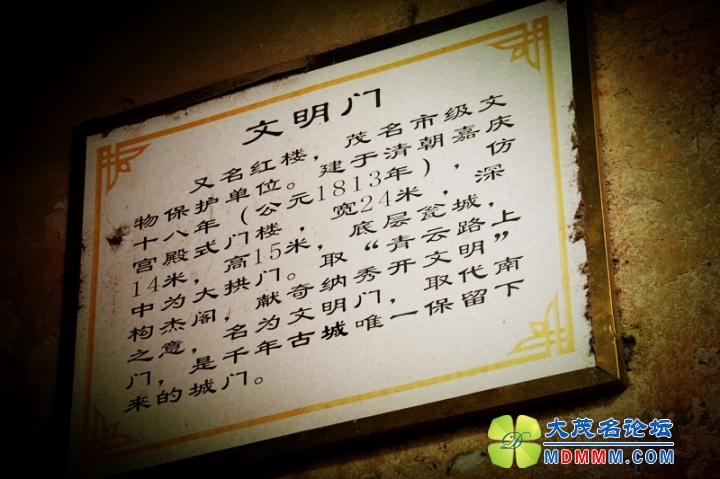 文明门
又名红楼，茂名市级文
物保护单位。建于清朝嘉庆
十八年（公元1813年），仿
宫殿式门楼，宽24米，深
14米，高15米，底层瓮城，
中为大拱门。取“青云路上
构杰阁，献奇纳秀开文明”
之意，名为文明门，取代南
门，是千年古城唯一保留下
来的城门。
大茂名论坛
MDMMM.COM